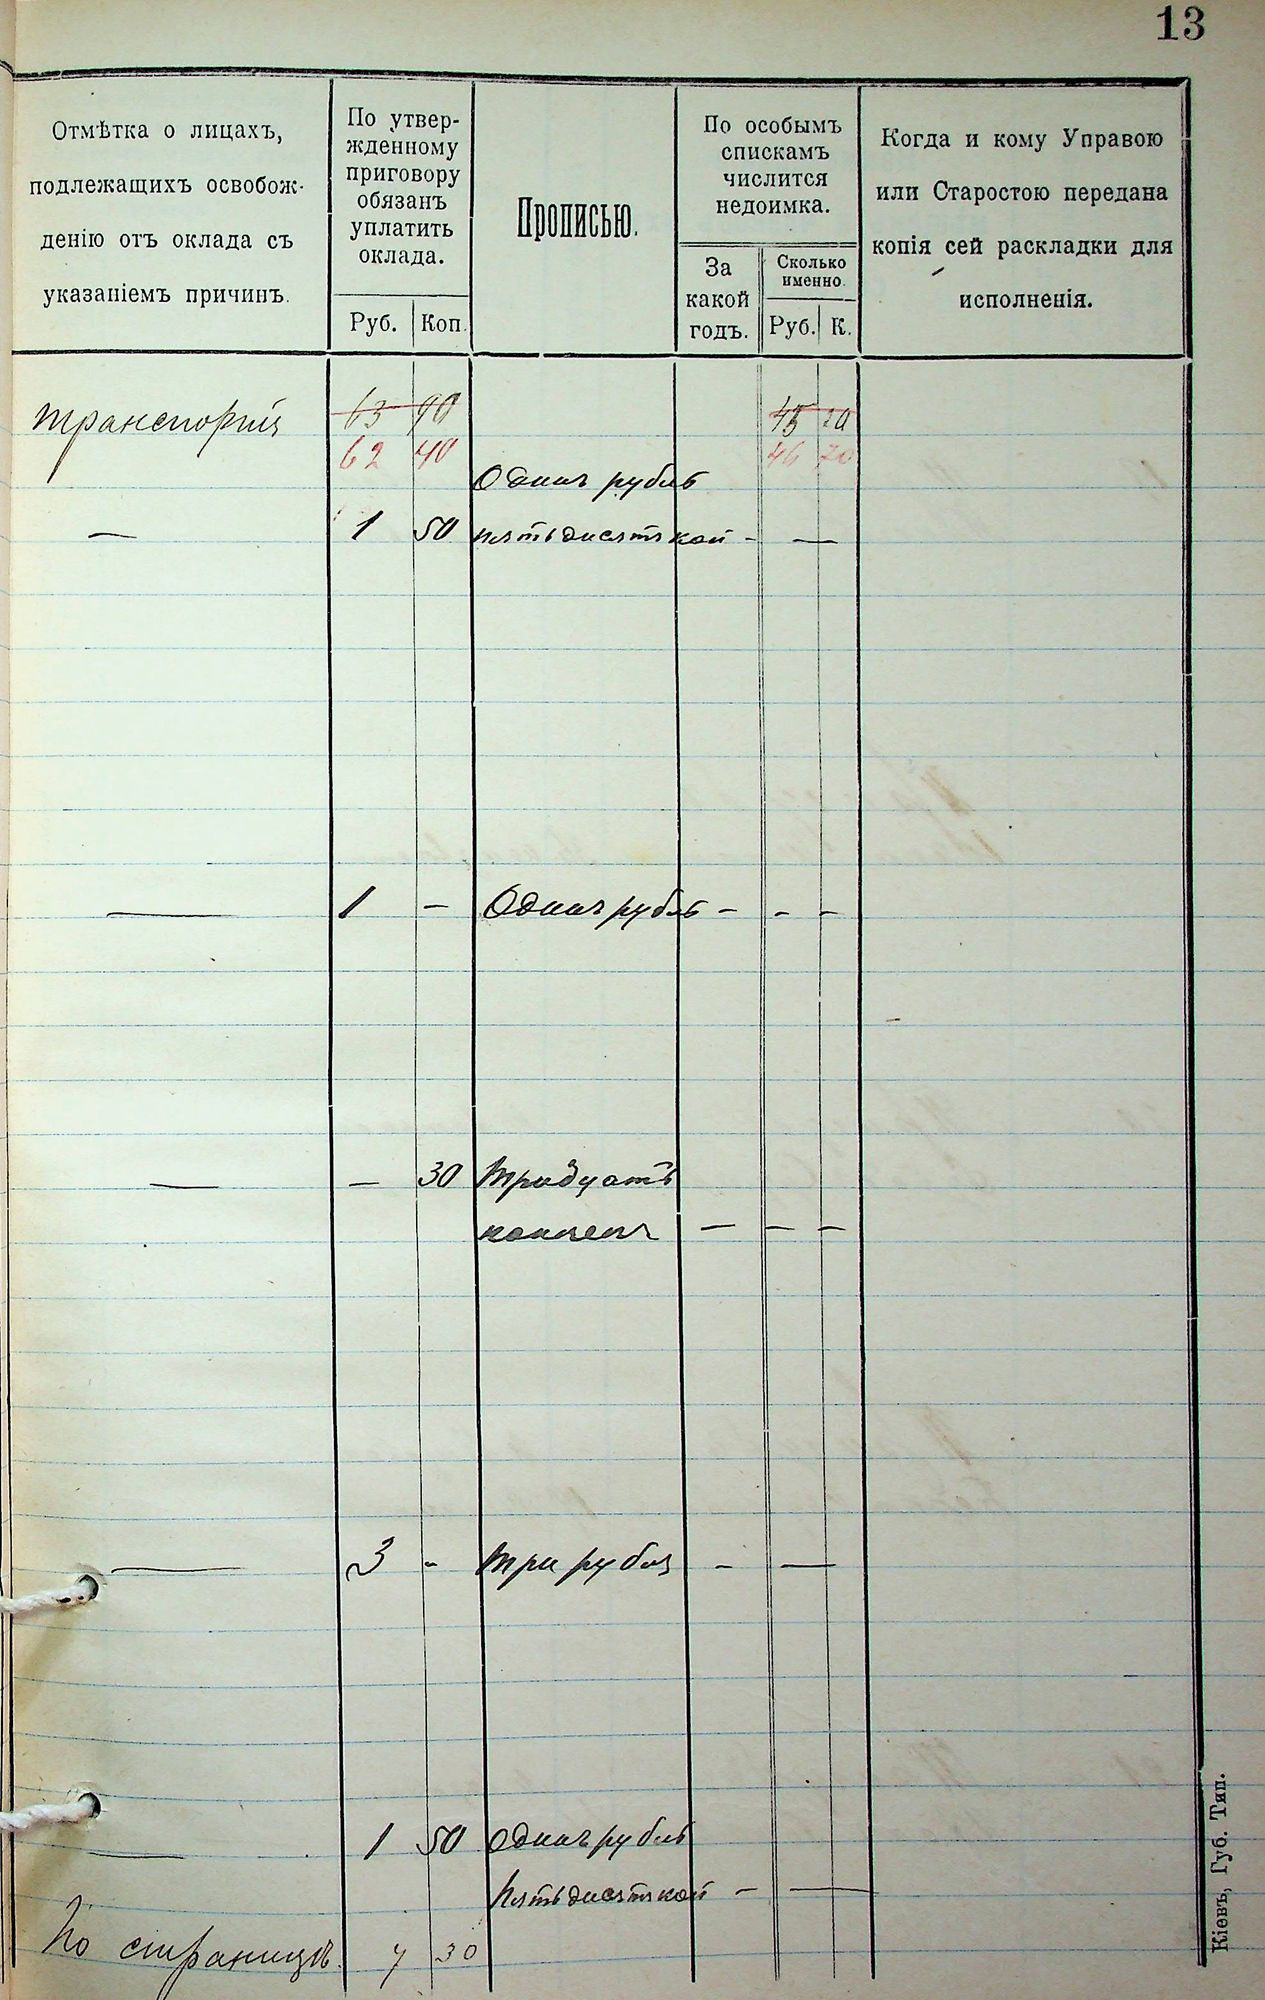 13
Отмѣтка о лицахъ,
подлежащихъ освобож-
денію отъ оклада съ
указаніемъ причинъ.
По утвер-
жденному
приговору
обязанъ
уплатить
оклада.
Руб. Коп.
Прописью.
По особымъ
спискамъ
числится
недоимка.
За
какой
годъ.
Сколько
именно.
Руб. К.
Когда и кому Управою
или Старостою передана
копія сей раскладки для
исполненія.
транспортъ 63 90 45 20
62 40 46 70
Одинъ рубль
— 1 50 пятьдесятъ коп - —
— 1 - Одинъ рубль - - -
— — 30 Тридцать
копѣекъ — — —
— 3 - Три рубля - —
— 1 50 Одинъ рубль
пятьдесятъ коп - —
По страницѣ 7 30
Кіевъ, Губ. Тип.